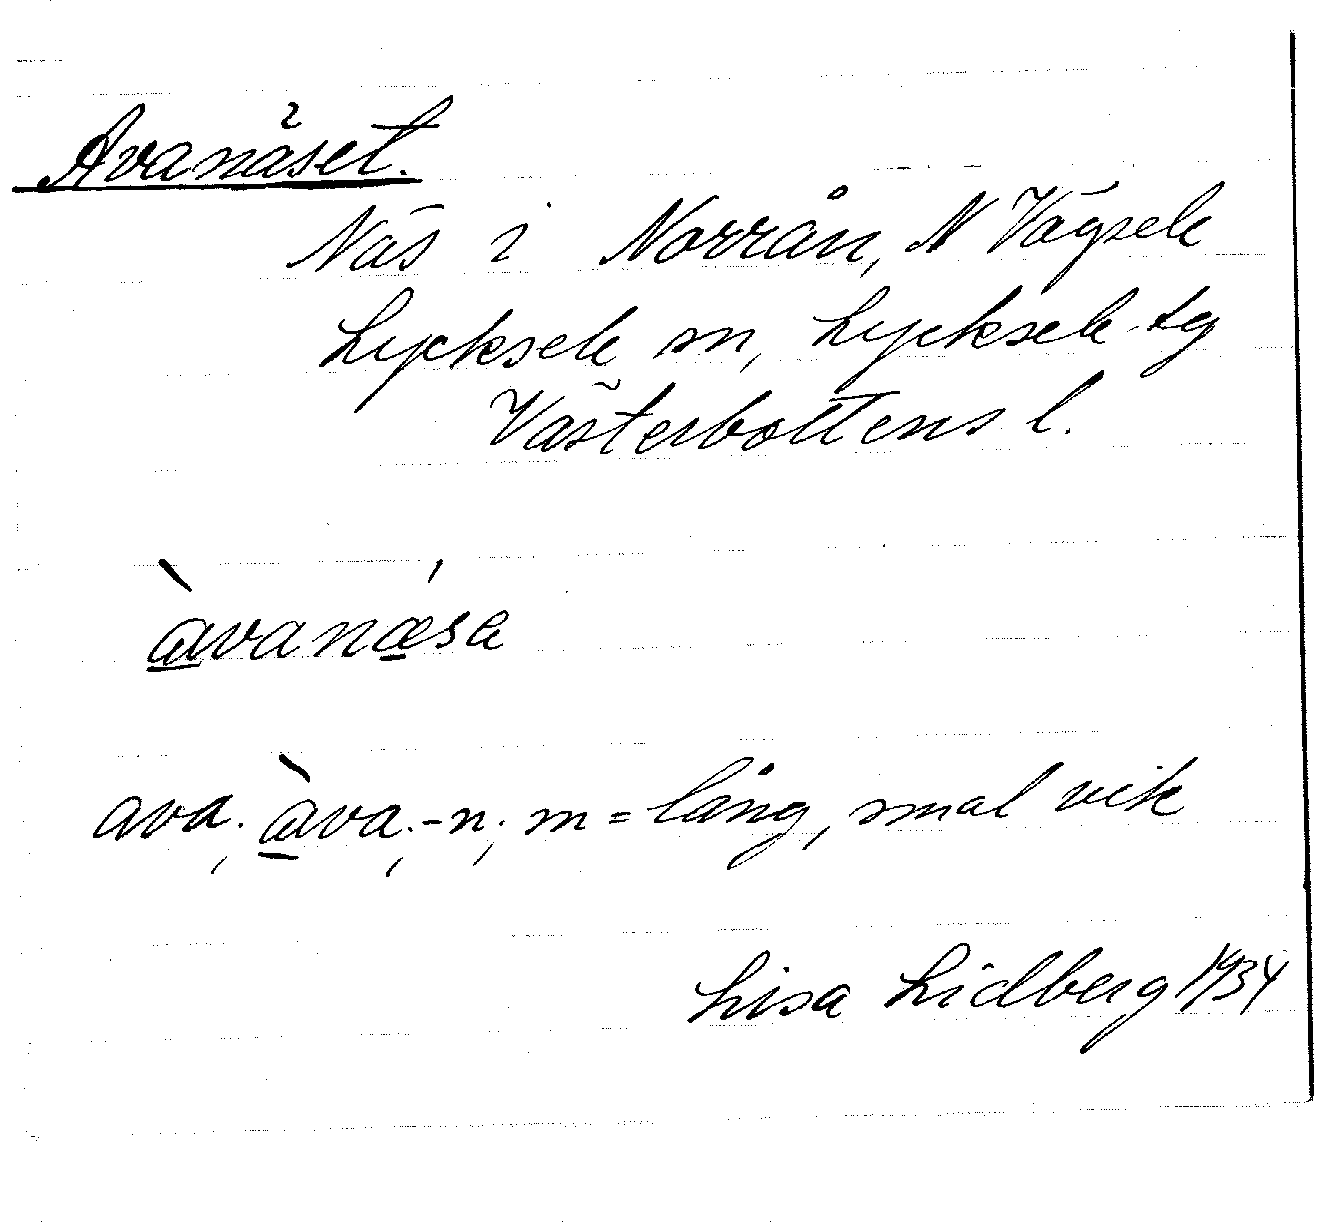 Avanäset.
Näs i Norrån, N Vägsele
Lycksele sn, Lycksele tg
Västerbottens l.
àvanǽsa
ava; àva; -n; m = lång, smal vik
Lisa Lidberg 1934